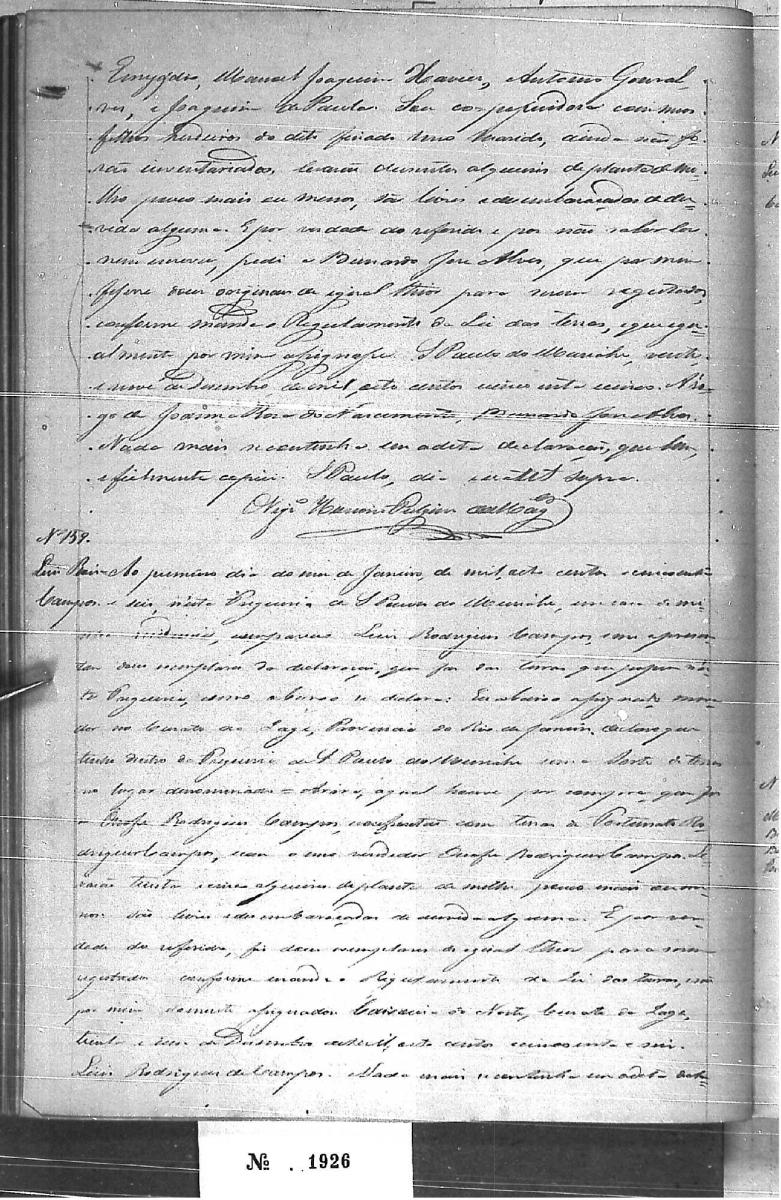 Emygdio, Manoel Joaquim Xavier, Antonio Gonsal-
ves, e Joaquim de Paula. Seu compossuidora com meus
filhos herdeiros do dito finado meu Marido, ainda não fo-
rão inventariados, levarão duzentos alqueires de planta de mi-
lho pouco mais ou menos, são livres e desembaraçadas de du-
vida alguma. E por verdade do referido e por não saber ler
nem escrever, pedi a Bernardo José Alves, que por mim
fizesse dous originaes de igual theor para serem registados
conforme manda o Regulamento da Lei das terras, e que igu-
almente por mim assignasse. S Paulo do Muriahe, vinte
e nove de Desembro de mil, oito centos cincoenta e cinco. A ro-
go de Joanna Rosa do Nascimento, Bernardo José Alves.
Nada mais se continha em a dita declaração, que bem,
e fielmente copiei. S Paulo, dia era ut supra.
O Vigrº
Nº 159.
Luis Roiz Campos
Ao primeiro dia do mes de Janeiro, de mil, oito centos e cincoenta
e seis, nesta Freguesia de S Paulo do Muriahe, em casa de mi-
nha residencia, compareceu Luis Rodrigues Campos, e me apresen-
tou dous exemplares da declaração, que faz das terras que possue nes-
ta Freguesia, como abaixo se declara: Eu abaixo assignado mora-
dor no Curato da Lage, Provincia do Rio de Janeiro, declaro que
tenho dentro da Freguesia de S Paulo do Muriahe uma Sorte de terras
no lugar denominado = , a qual houve por compra, que fiz
a Rodrigues Campos, confrontão com terras de Fortunato Ro-
drigues Campos, e com o meu vendedor Rodrigues Campos. Le-
varão trinta e cinco alqueires de planta de milho pouco mais ou me-
nos: são livres e desembaraçadas de duvida alguma. E por ver-
dade do referido, fiz dous exemplares de igual theor para serem
registados conforme manda o Regulamento da Lei das terras, e só
por mim somente assignados. do Norte, Curato da Lage,
trinta e um de Desembro de mil, oito centos cincoenta e seis.
Luis Rodrigues de Campos. Nada mais se continha em a dita de-
Nº. 1926